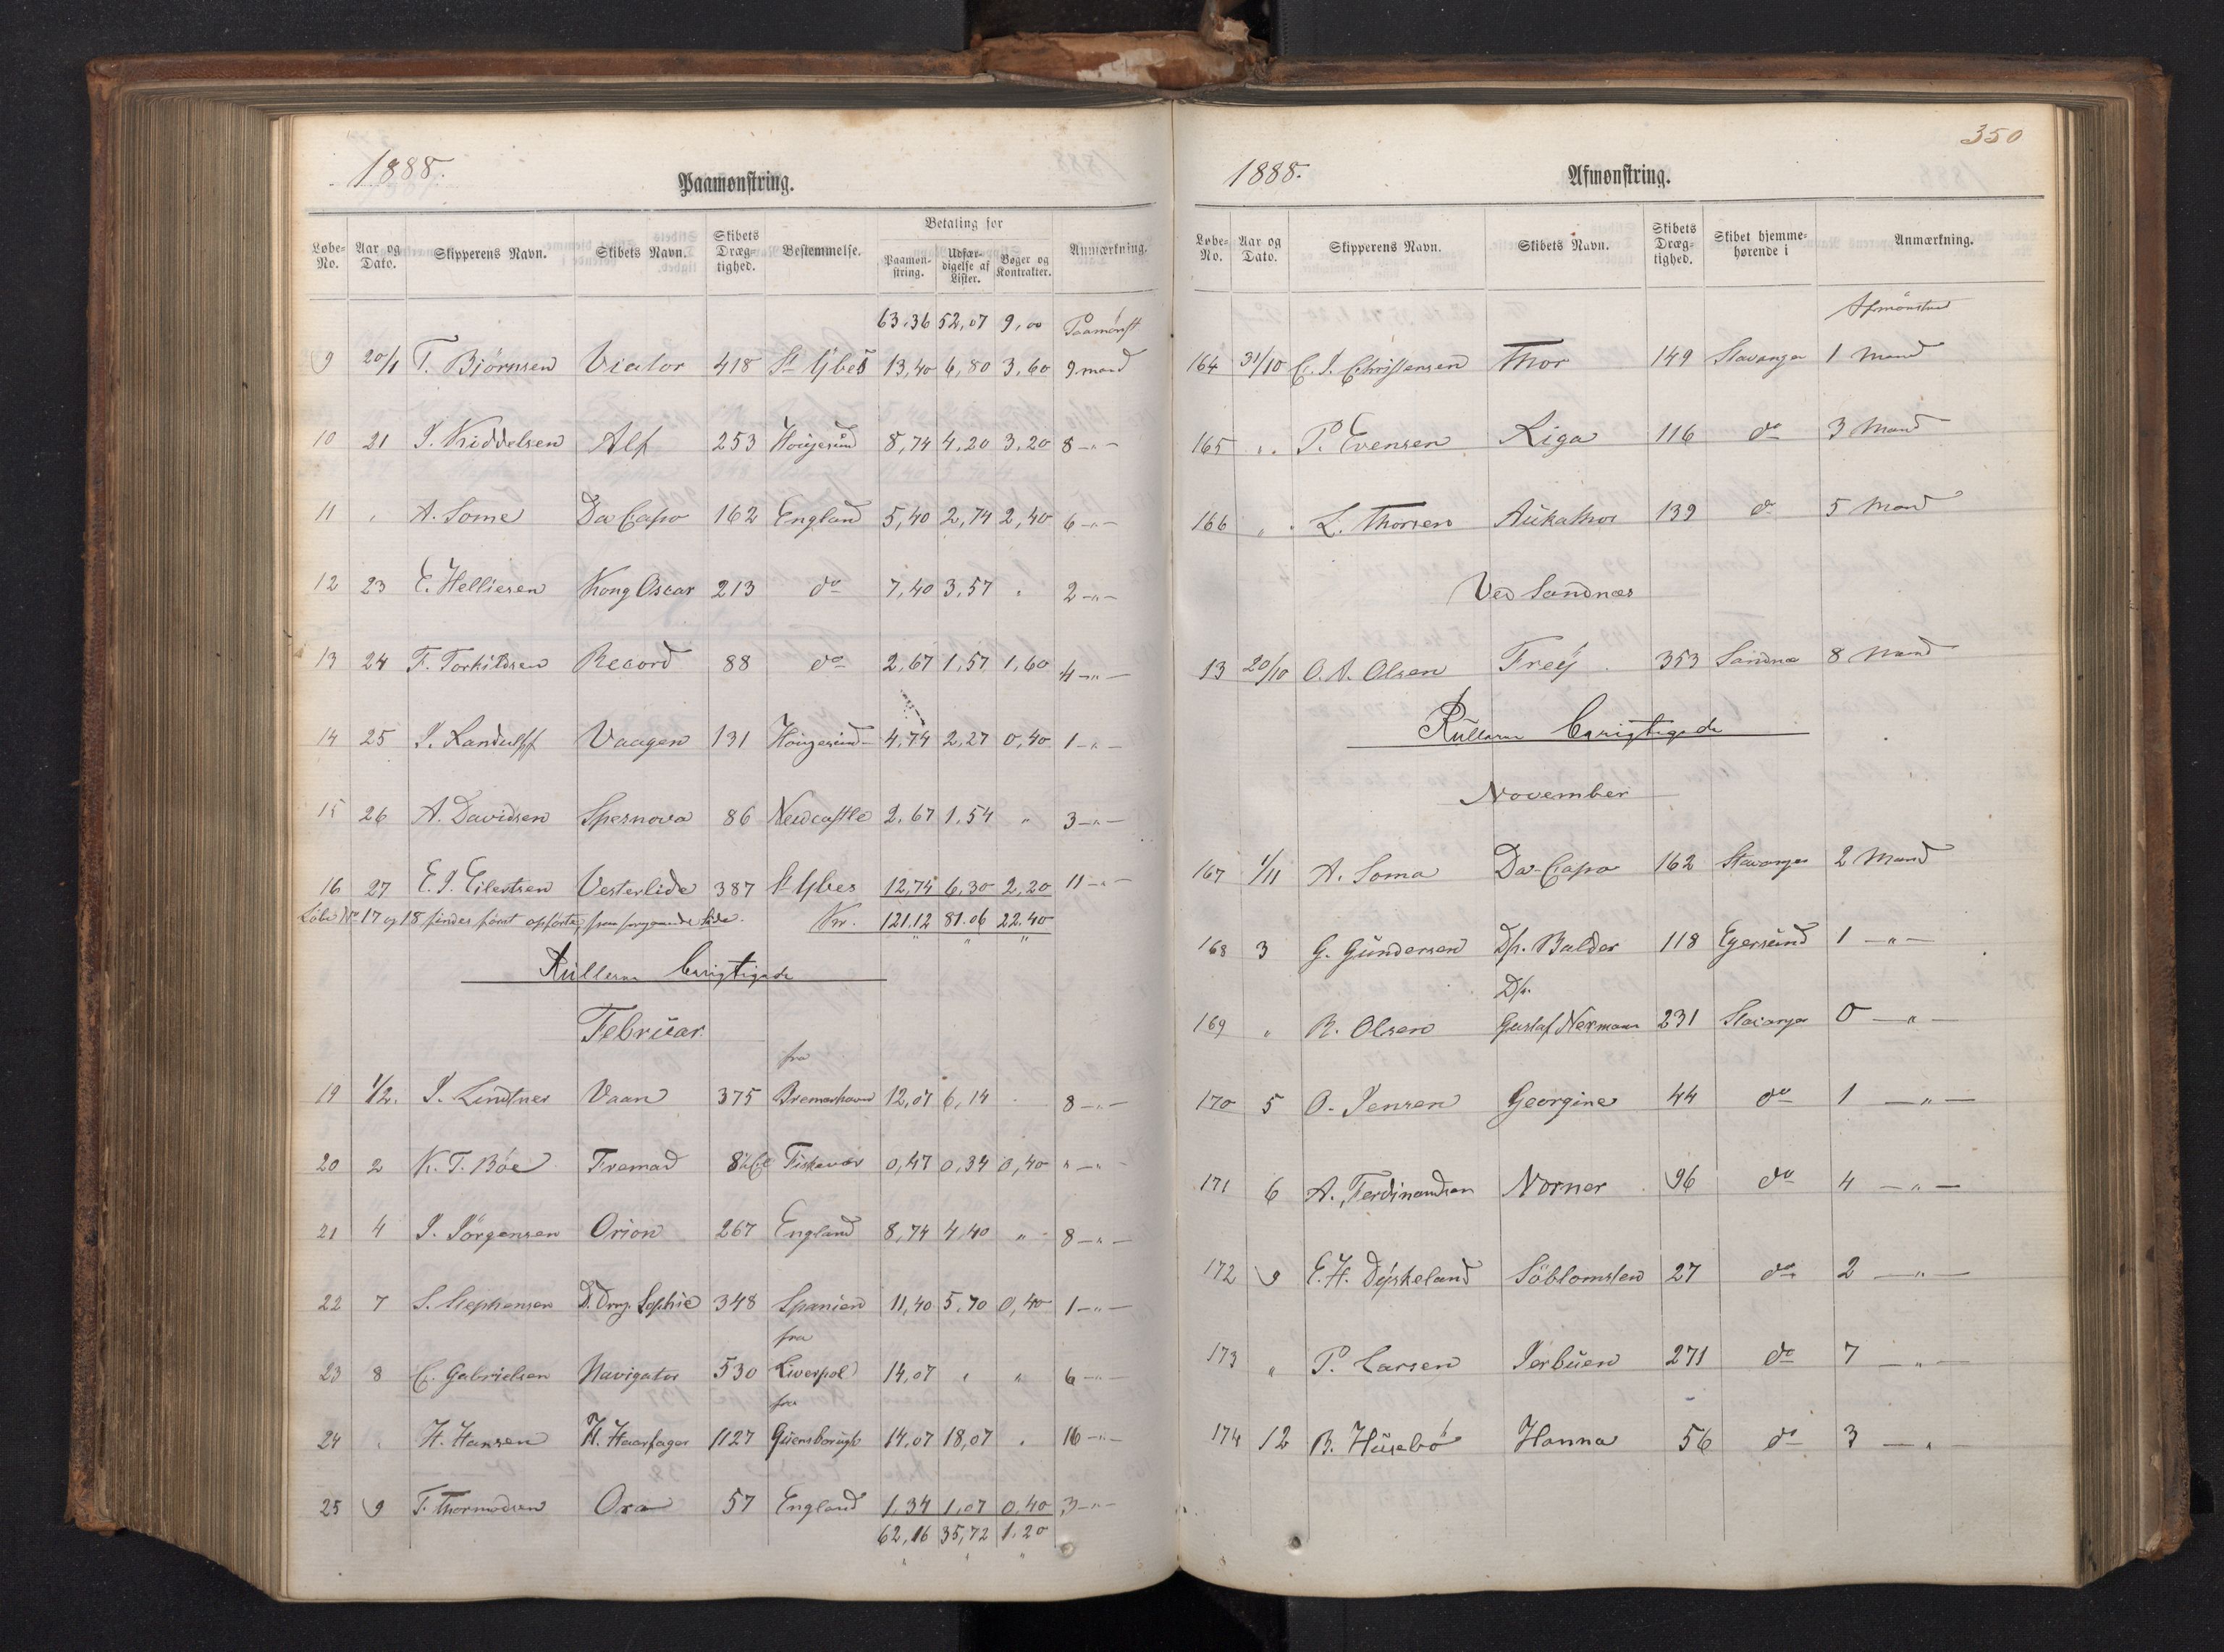 1888.
Paamønstring.
Løbe-No. Aar og Dato. Skipperens Navn. Skibets Navn. Skibets Dræg-tighed. Bestemmelse. Betaling for Paamøn-string. Udfær-digelse af Lister. Bøger og Kontrakter. Anmærkning.
63,36 52,07 9,00 Paamønst
9 20/1 T. Bjørnsen Viator 418 St Ybes 13,40 6,80 3,60 9 mand
10 21 J. Kiddelsen Alf 253 Hougesund 8,74 4,20 3,20 8 -"-
11 " A. Some Da Capo 162 England 5,40 2,74 2,40 6 -"-
12 23 E. Helliesen Kong Oscar 213 do 7,40 3,57 " 2 -"-
13 24 F. Torkildsen Record 88 do 2,67 1,57 1,60 4 -"-
14 25 J. Randulff Vaagen 131 Hougesund 4,74 2,27 0,40 1 -"-
15 26 A. Davidsen Spesnova 86 Newcastle 2,67 1,54 " 3 -"-
16 27 E. J. Eilertsen Vesterlide 387 St Ybes 12,74 6,30 2,20 11 -"-
Löbe No 17 og 18 findes först opförte, paa foregaaende side. Kr. 121.12 81.06 22.40
Rullerne berigtigede
Februar.
fra
19 1/2. J. Lindtner Vaan 375 Bremerhavn 12,07 6,14 . 8 -"-
20 2 K. T. Böe Fremad 8 Fiskevær 0,47 0,34 0,40 " -"-
21 4 J. Jörgensen Orion 267 England 8,74 4,40 " 8 -"-
22 7 S. Stephensen D. Drng. Sophie 348 Spanien 11,40 5,70 0,40 1 -"-
fra
23 8 C. Gabrielsen Navigator 530 Liverpol 14,07 " " 6 -"-
fra
24 " H. Hansen H. Haarfager 1127 Queensborough 14,07 18,07 . 16 -"-
25 9 T. Thormodsen Oxa 57 England 1,34 1,07 0,40 3 -"-
62,16 35,72 1,20
350
1888.
Afmønstring.
Løbe-No. Aar og Dato. Skipperens Navn. Skibets Navn. Skibets Dræg-tighed. Skibet hjemme-hørende i Anmærkning.
Afmönstred
164 31/10 C. J. Christensen Thor 149 Stavanger 1 Mand
165 " P. Evensen Riga 116 do 3 Mand
166 " L. Thorsen Aukathor 139 do 5 Mand
Ved Sandnæs
13 20/10 O. A. Olsen Frey 353 Sandnæs 8 Mand
Rullerne berigtigede
November
167 1/11 A. Soma Da-Capo 162 Stavanger 2 Mand
168 3 G. Gundersen Dp. Balder 118 Egersund 1 -"-
Dp.
169 " R. Olsen Gustaf Nerman 231 Stavanger 0 -"-
170 5 O. Jensen Georgine 44 do 1 -"-
171 6 A. Ferdinandsen Norner 96 do 4 -"-
172 9 E. H. Dyskeland Söblomsten 27 do 2 -"-
173 " P. Larsen Jerbuen 271 do 7 -"-
174 12 B. Husebö Hanna 56 do 3 -"-